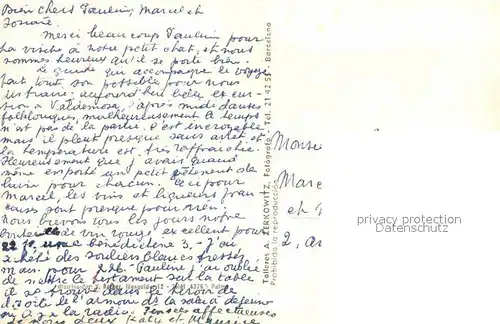 Bien chers Pauline, Marcel et
Josiane.
Merci beaucoup Pauline pour
la visite à notre petit chat, et nous
sommes heureux qu'il se porte bien.
Le guide qui accompagne le voyage
fait tout son possible pour nous
instruire: aujourd'hui belle excur-
sion à Valdemosa, l'après midi danses
folkloriques, malheureusement le temps
n'est pas de la partie. C'est incroyable
mais il pleut presque sans arrêt et
la température est très raffraichie.
Heureusement que j'avais quand
même emporté un petit vêtement de
laine pour chacun. Ici pour
Marcel, les vins et liqueurs fran
çaises sont presque pour rien.
Nous buvons tous les jours notre
bouteille de vin rouge excellent pour
22 p. une bénédictine 3. - J'ai
acheté des souliers blancs tressés
main pour 226. Pauline j'ai oublié
de mettre le testament sur la table
il se trouve dans le tiroir de
droite de l'armoire de la salle à déjeuner
où il y a la radio. Pensées affectueuses
de nous deux Katy et Maurice
Talleres A. ZERKOWITZ, Fotógrafo - Tel. 21 42 55 - Barcelona
Prohibida la reproducción
2,
et
privacy protection
Datenschutz